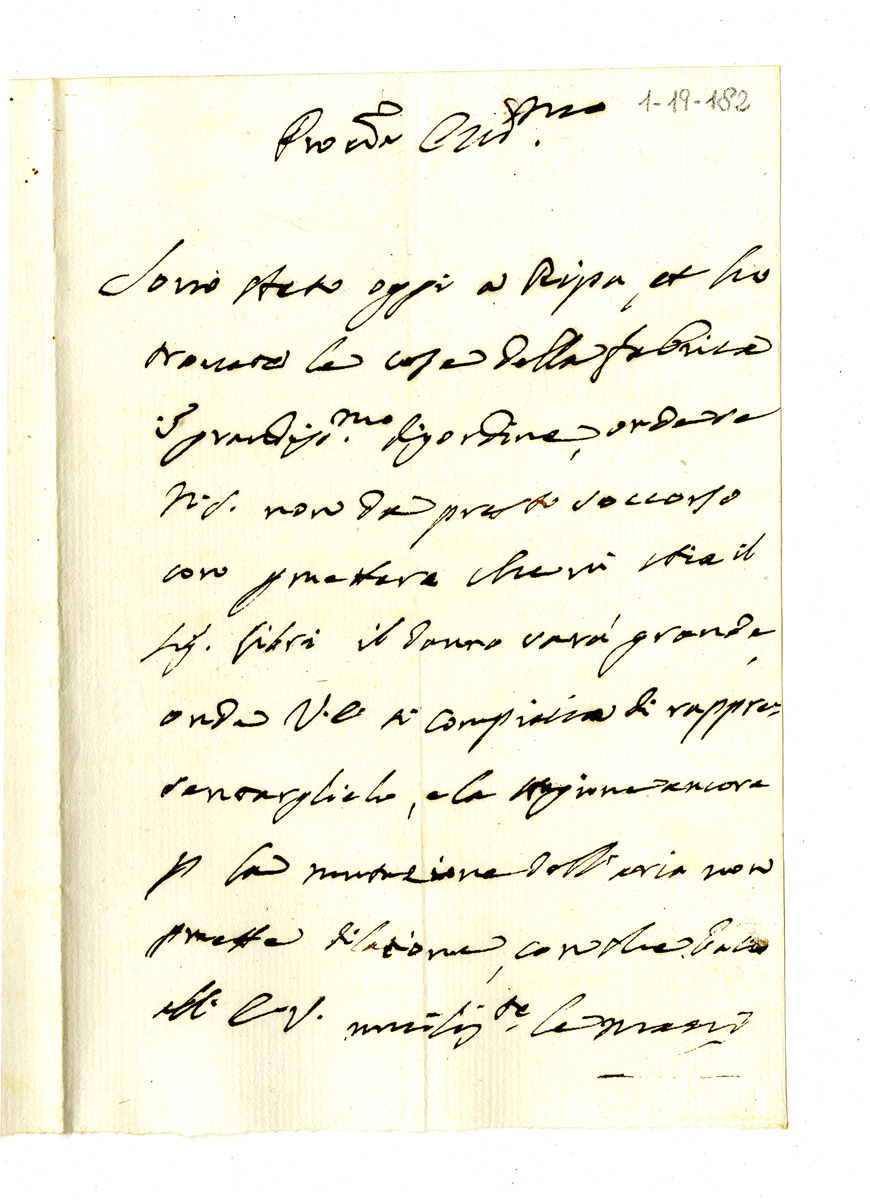 1-19-182
Sono stato oggi a Ripa, et ho
trovato le cose della fabrica
in grandiss.mo disordine, onde se
N.S. non dà presto soccorso
con pmettere che vi stia il
Sig. libri il danno sarà grande,
onde V.E. si compiaccia di rappre-
sentarglielo, e la stagione ancora
p la mutazione dell'aria non
pmette dilatione, con che bacio
all' E.V. umilis.te le mani